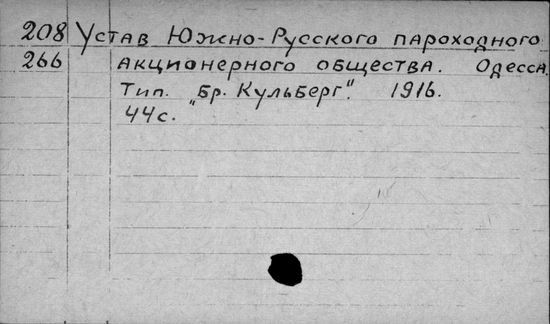 208 Устав Южно-Русского пароходного
266 акционерного общества. Одесса,
Тип. „Бр. Кульберг". 1916.
44с.